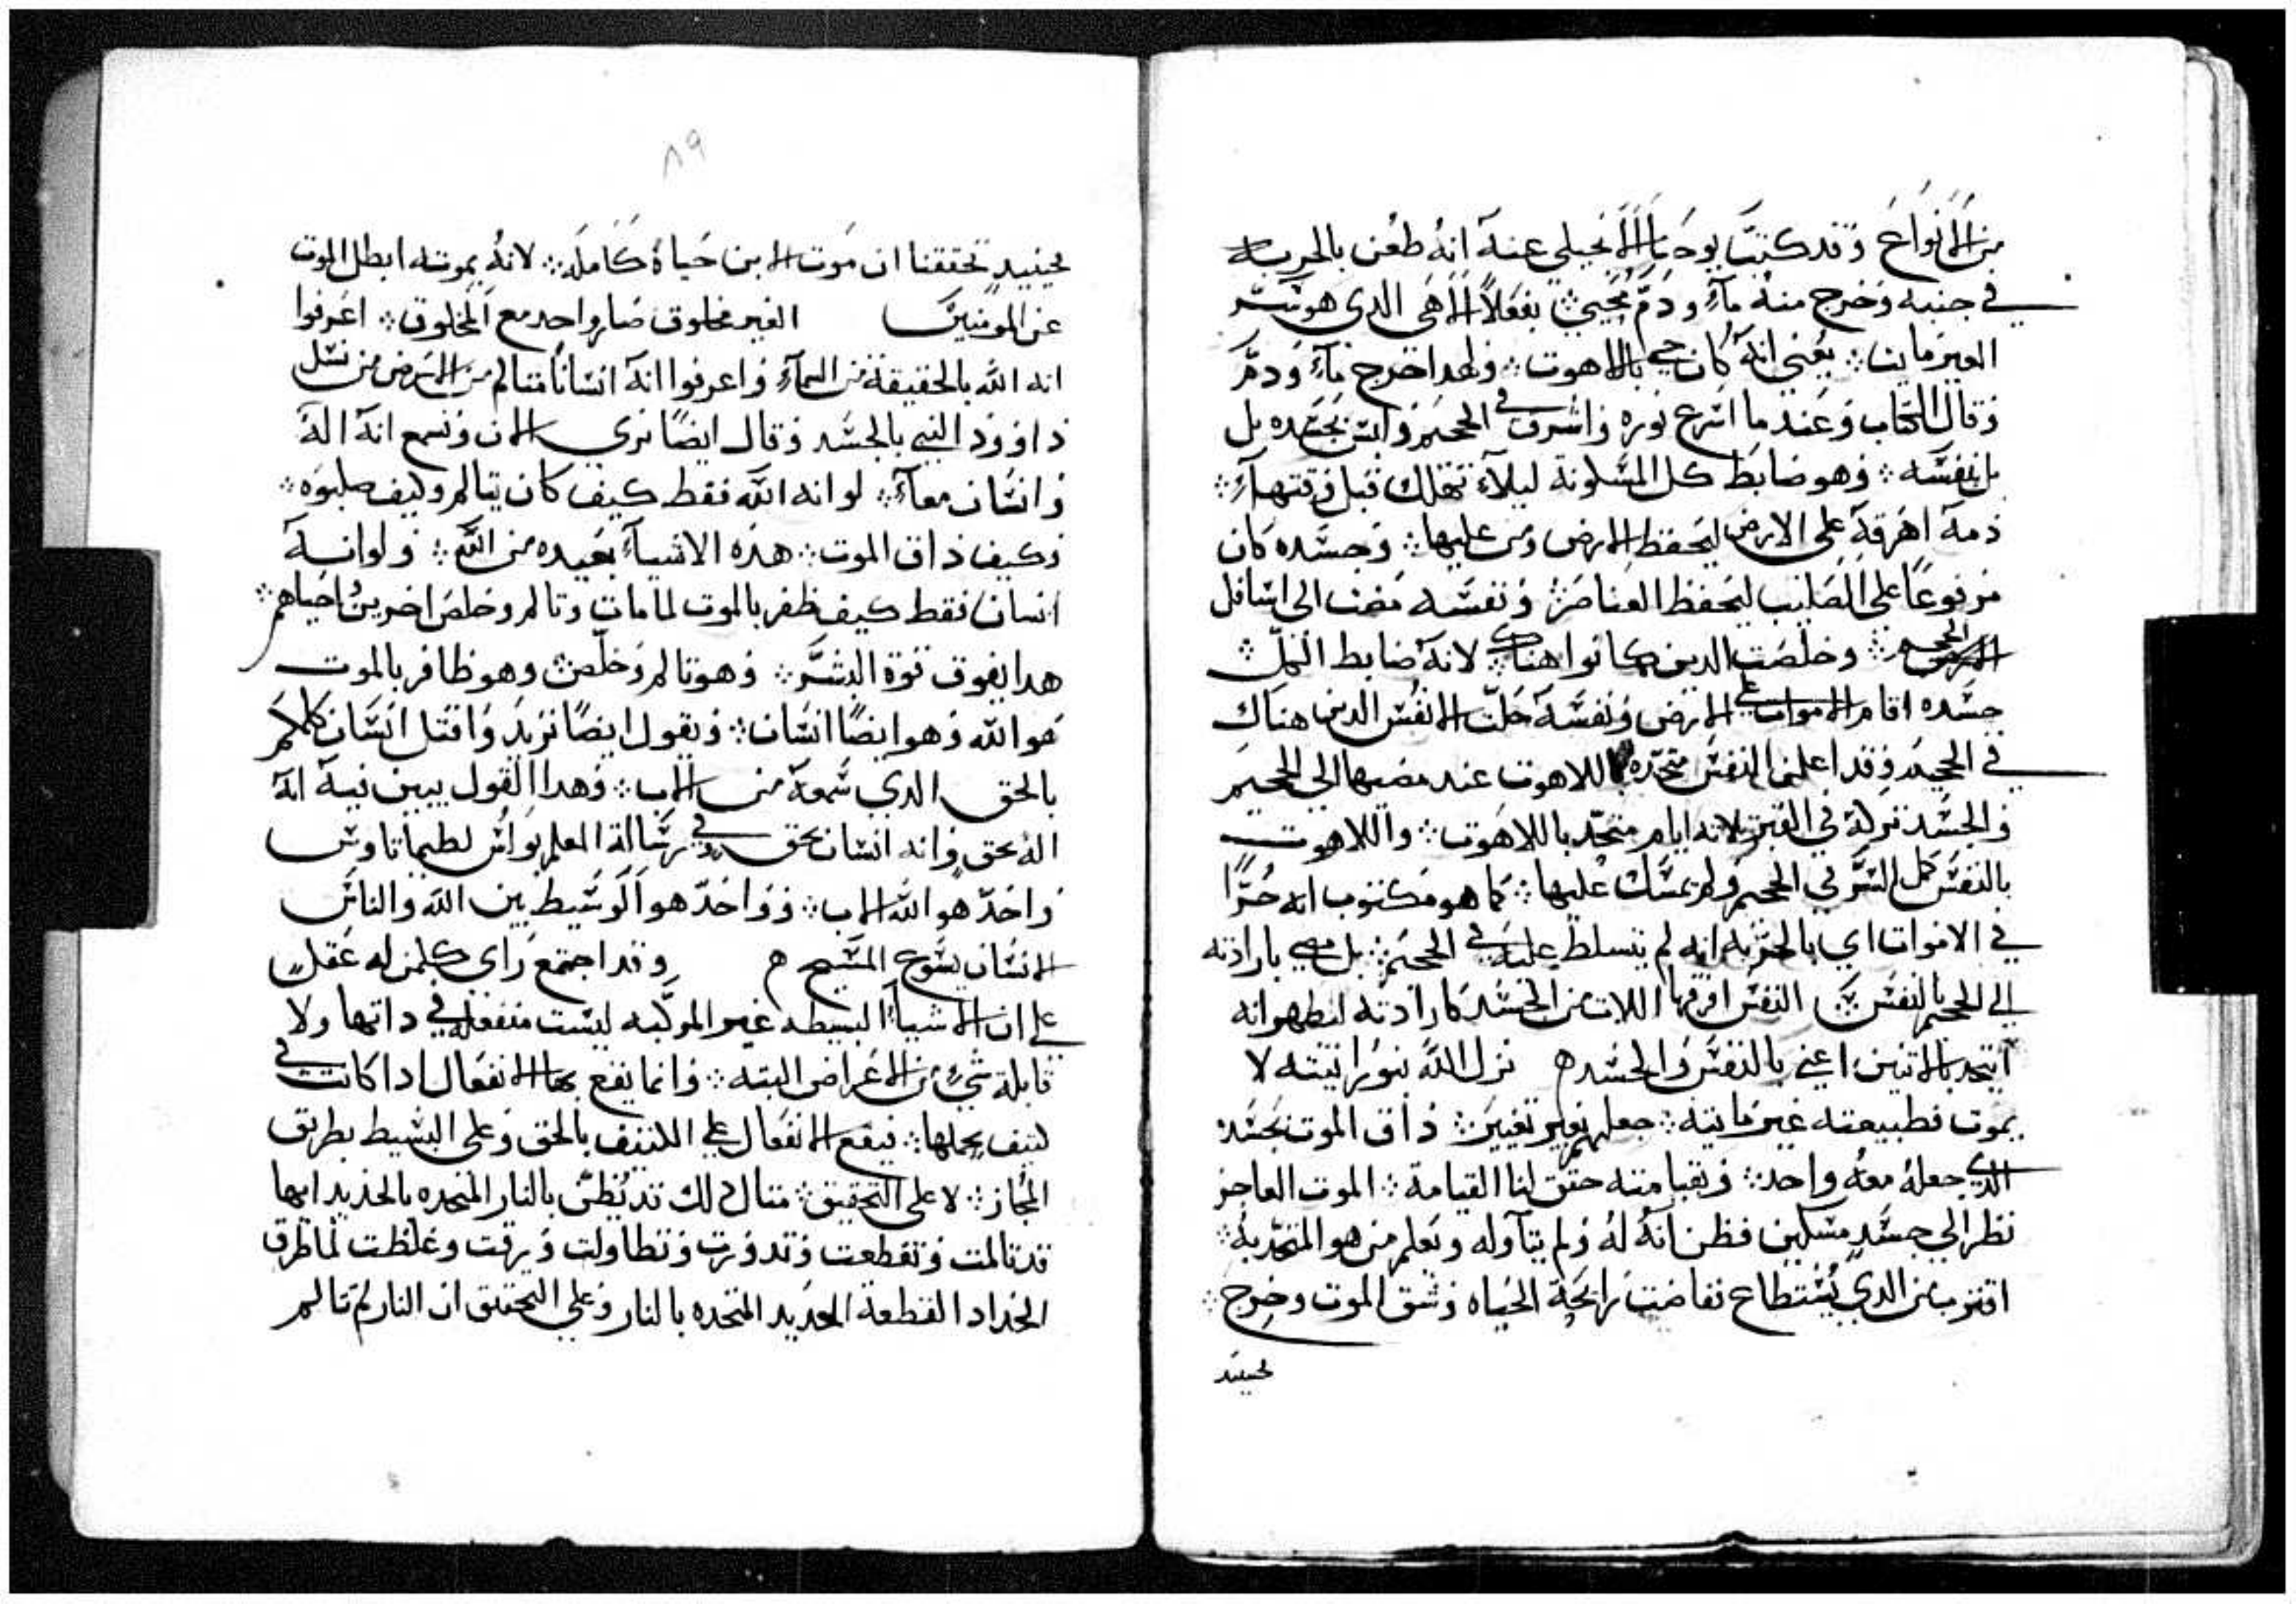 من الانواع وقد كتب يوحنا الانجيلي عنه انه طعن بالحربه
في جنبه وخرج منه مآء ودم محيي ⁘ بفعل الاهي الدي هو بسر
الغير مايت ⁘ يعني انه كان حي بالاهوت ⁘ ولهدا خرج مآء ودم
وقال الكتاب وعند ما اسرع نوره واشرق في الجحيم وليس بجسده بل
بل بنفسه ⁘ وهو ضابط كل المسكونة ليلا تهلك قبل وقتها ⁘
دمه اهرقه علي الارض ليحفظ الارض ومن عليها ⁘ وجسده كان
مرفوعا علي الصليب ليحفظ العناصر ⁘ ونفسه مضت الى اسافل
الجحيم ⁘ وخلصت الدين كانوا هناك ⁘ لانه ضابط الكل ⁘
جسده اقام الاموات علي الارض ونفسه حلت الانفس الدين هناك
في الجحيم وقد اعلن النفس متحده باللاهوت عند مضيها الى الجحيم
والجسد تركه في القبر تلاته ايام متحد باللاهوت ⁘ واللاهوت
بالنفس كمل السر في الجحيم ولم يمسك عليها ⁘ كما هو مكتوب انه حرًا
في الاموات اي بالحريه انه لم يتسلط عليه في الجحيم ⁘ بل مضي بارادته
الي الجحيم بالنفس ⁘ النفس افرقها اللات من الجسد كارادته ليظهر انه
اتحد بالاتنين اعني بالنفس والجسد ه نزل الله بنورانيته لا
يموت فطبيعته غير مايته ⁘ جعلهم بغير تغيير ⁘ داق الموت بجسد
الدي جعله معه واحد ⁘ وبقيامته حقق لنا القيامة ⁘ الموت العاجز
نظر الي جسد مسكين فظن انه له ولم يتآوله ويعلم من هو المتحد به ⁘
اقترب من الدي يستطاع نفاضت رايحة الحياه وشق الموت وخرج ⁘
حينيد
٨٩
حينيد تحققنا ان موت الابن حياة كامله ⁘ لانه بموته ابطل الموت
عن المومنين الغير مخلوق صار واحد مع المخلوق ⁘ اعرفوا
انه الله بالحقيقة من السمآء واعرفوا انه انسانا متالم من الارض من نسل
داوود النبي بالجسد وقال ايضًا نري الان ونسمع انه اله
وانسان معآ ⁘ لو انه الله فقط كيف كان يتالم وكيف صلبوه ⁘
وكيف داق الموت ⁘ هده الاشيآء بعيده من الله ⁘ ولو انه
انسان فقط كيف ظفر بالموت لما مات وتالم وخلص اخرين احياهم ⁘
هدا يفوق قوة البشر ⁘ وهو تالم وخلص وهو ظافر بالموت
هو الله وهو ايضًا انسان ⁘ ويقول ايضًا نريد واقتل انسان كلمكم
بالحق الدي سمعه من الاب ⁘ وهدا القول يبين فيه انه
اله بحق وانه انسان بحق في رسالة المعلم بولس لطيماتاوس
واحد هو الله الاب ⁘ وواحد هو الوسيط بين الله والناس
الانسان يسوع المسيح ه وقد اجتمع راي كلمن له عقل
علي ان الاشيآء البسيطه غير المركبه ليست منفعله في داتها ولا
قابلة شيء من الاعراض البته ⁘ وانما يقع بها الانفعال ادا كانت في
كتيف يحملها ⁘ فيقع الانفعال علي الكتيف بالحق وعلى البسيط بطريق
المجاز ⁘ لا على التحقيق ⁘ متال دلك قد يُظن بالنار المتحده بالحديد انها
قد تالمت وتقطعت وتدورت وتطاولت ورقت وغلظت لما طرق
الحداد القطعة الحديد المتحده بالنار وعلي التحقيق ان النار لم تتالم